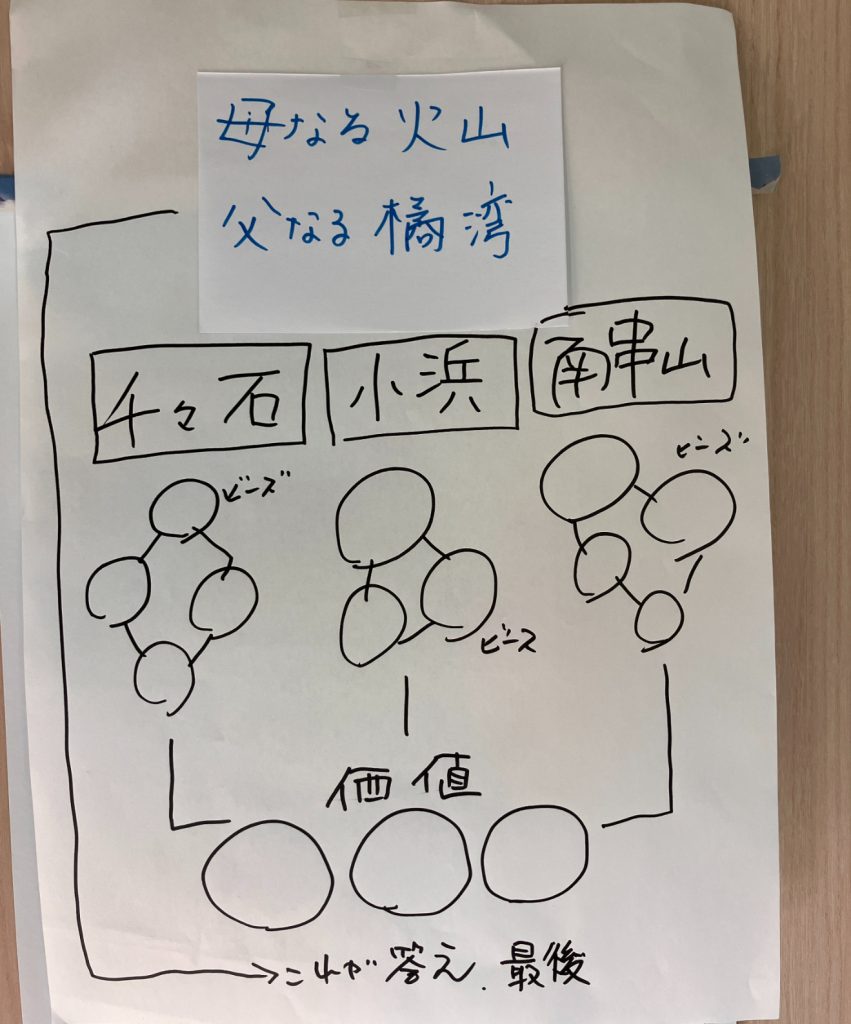 母なる火山
父なる橘湾
千々石
小浜
南串山
ビーズ
ビーズ
ビーズ
価値
これが答え. 最後